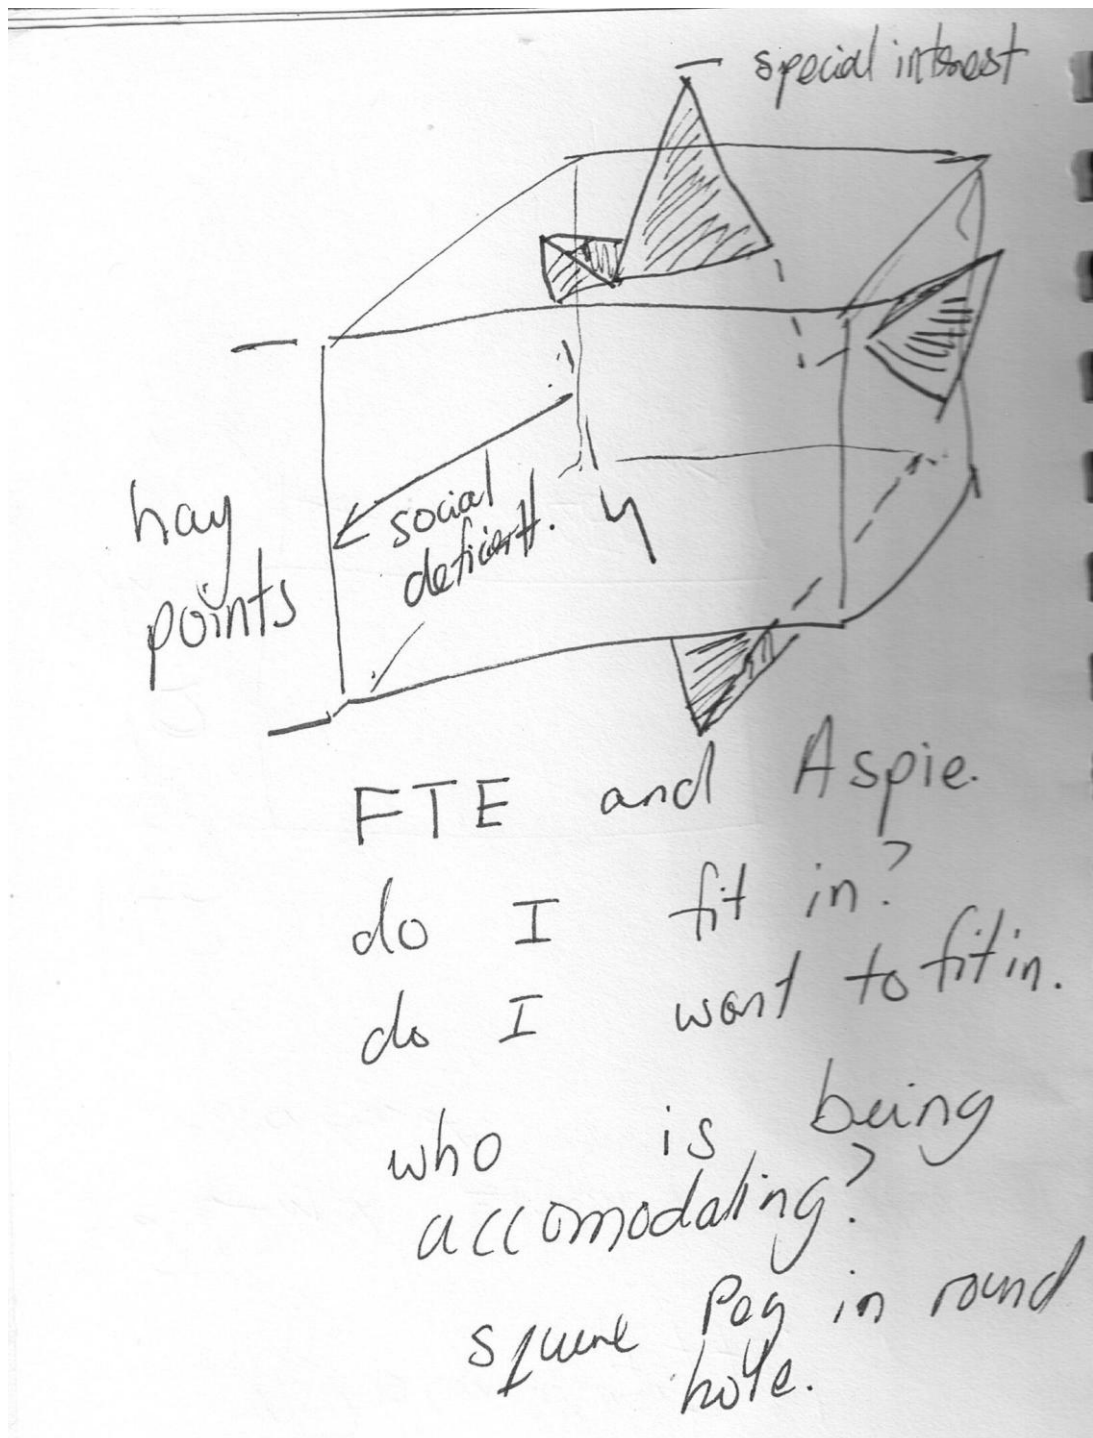 special interest
hay
points
social
deficit.
FTE and Aspie.
do I fit in?
do I want to fit in.
who is being
accomodating?
square Peg in round
hole.